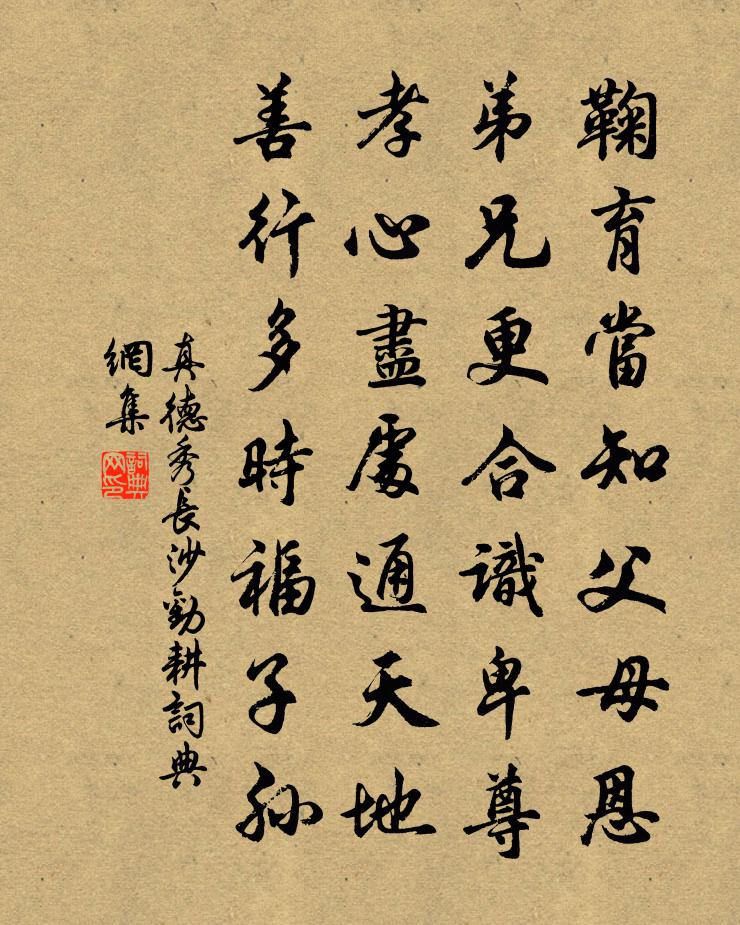 鞠育當知父母恩
弟兄更合識卑尊
孝心盡處通天地
善行多時福子孫
真德秀長沙勸耕詞典
網集
詞典
网印